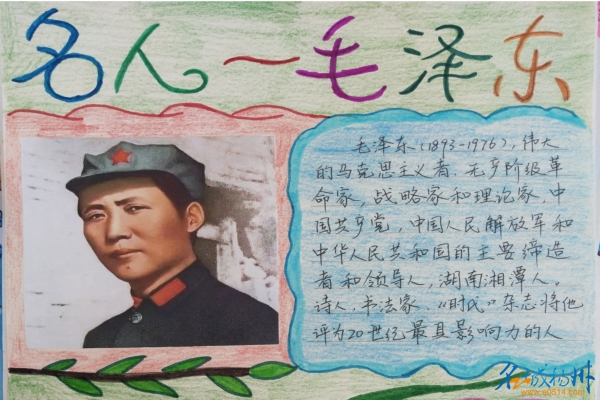 名人一毛泽东
毛泽东(1893-1976),伟大
的马克思主义者,无产阶级革
命家,战略家和理论家,中
国共产党,中国人民解放军和
中华人民共和国的主要缔造
者和领导人,湖南湘潭人。
诗人,书法家。《时代》杂志将他
评为20世纪最具影响力的人
www.e0514.com